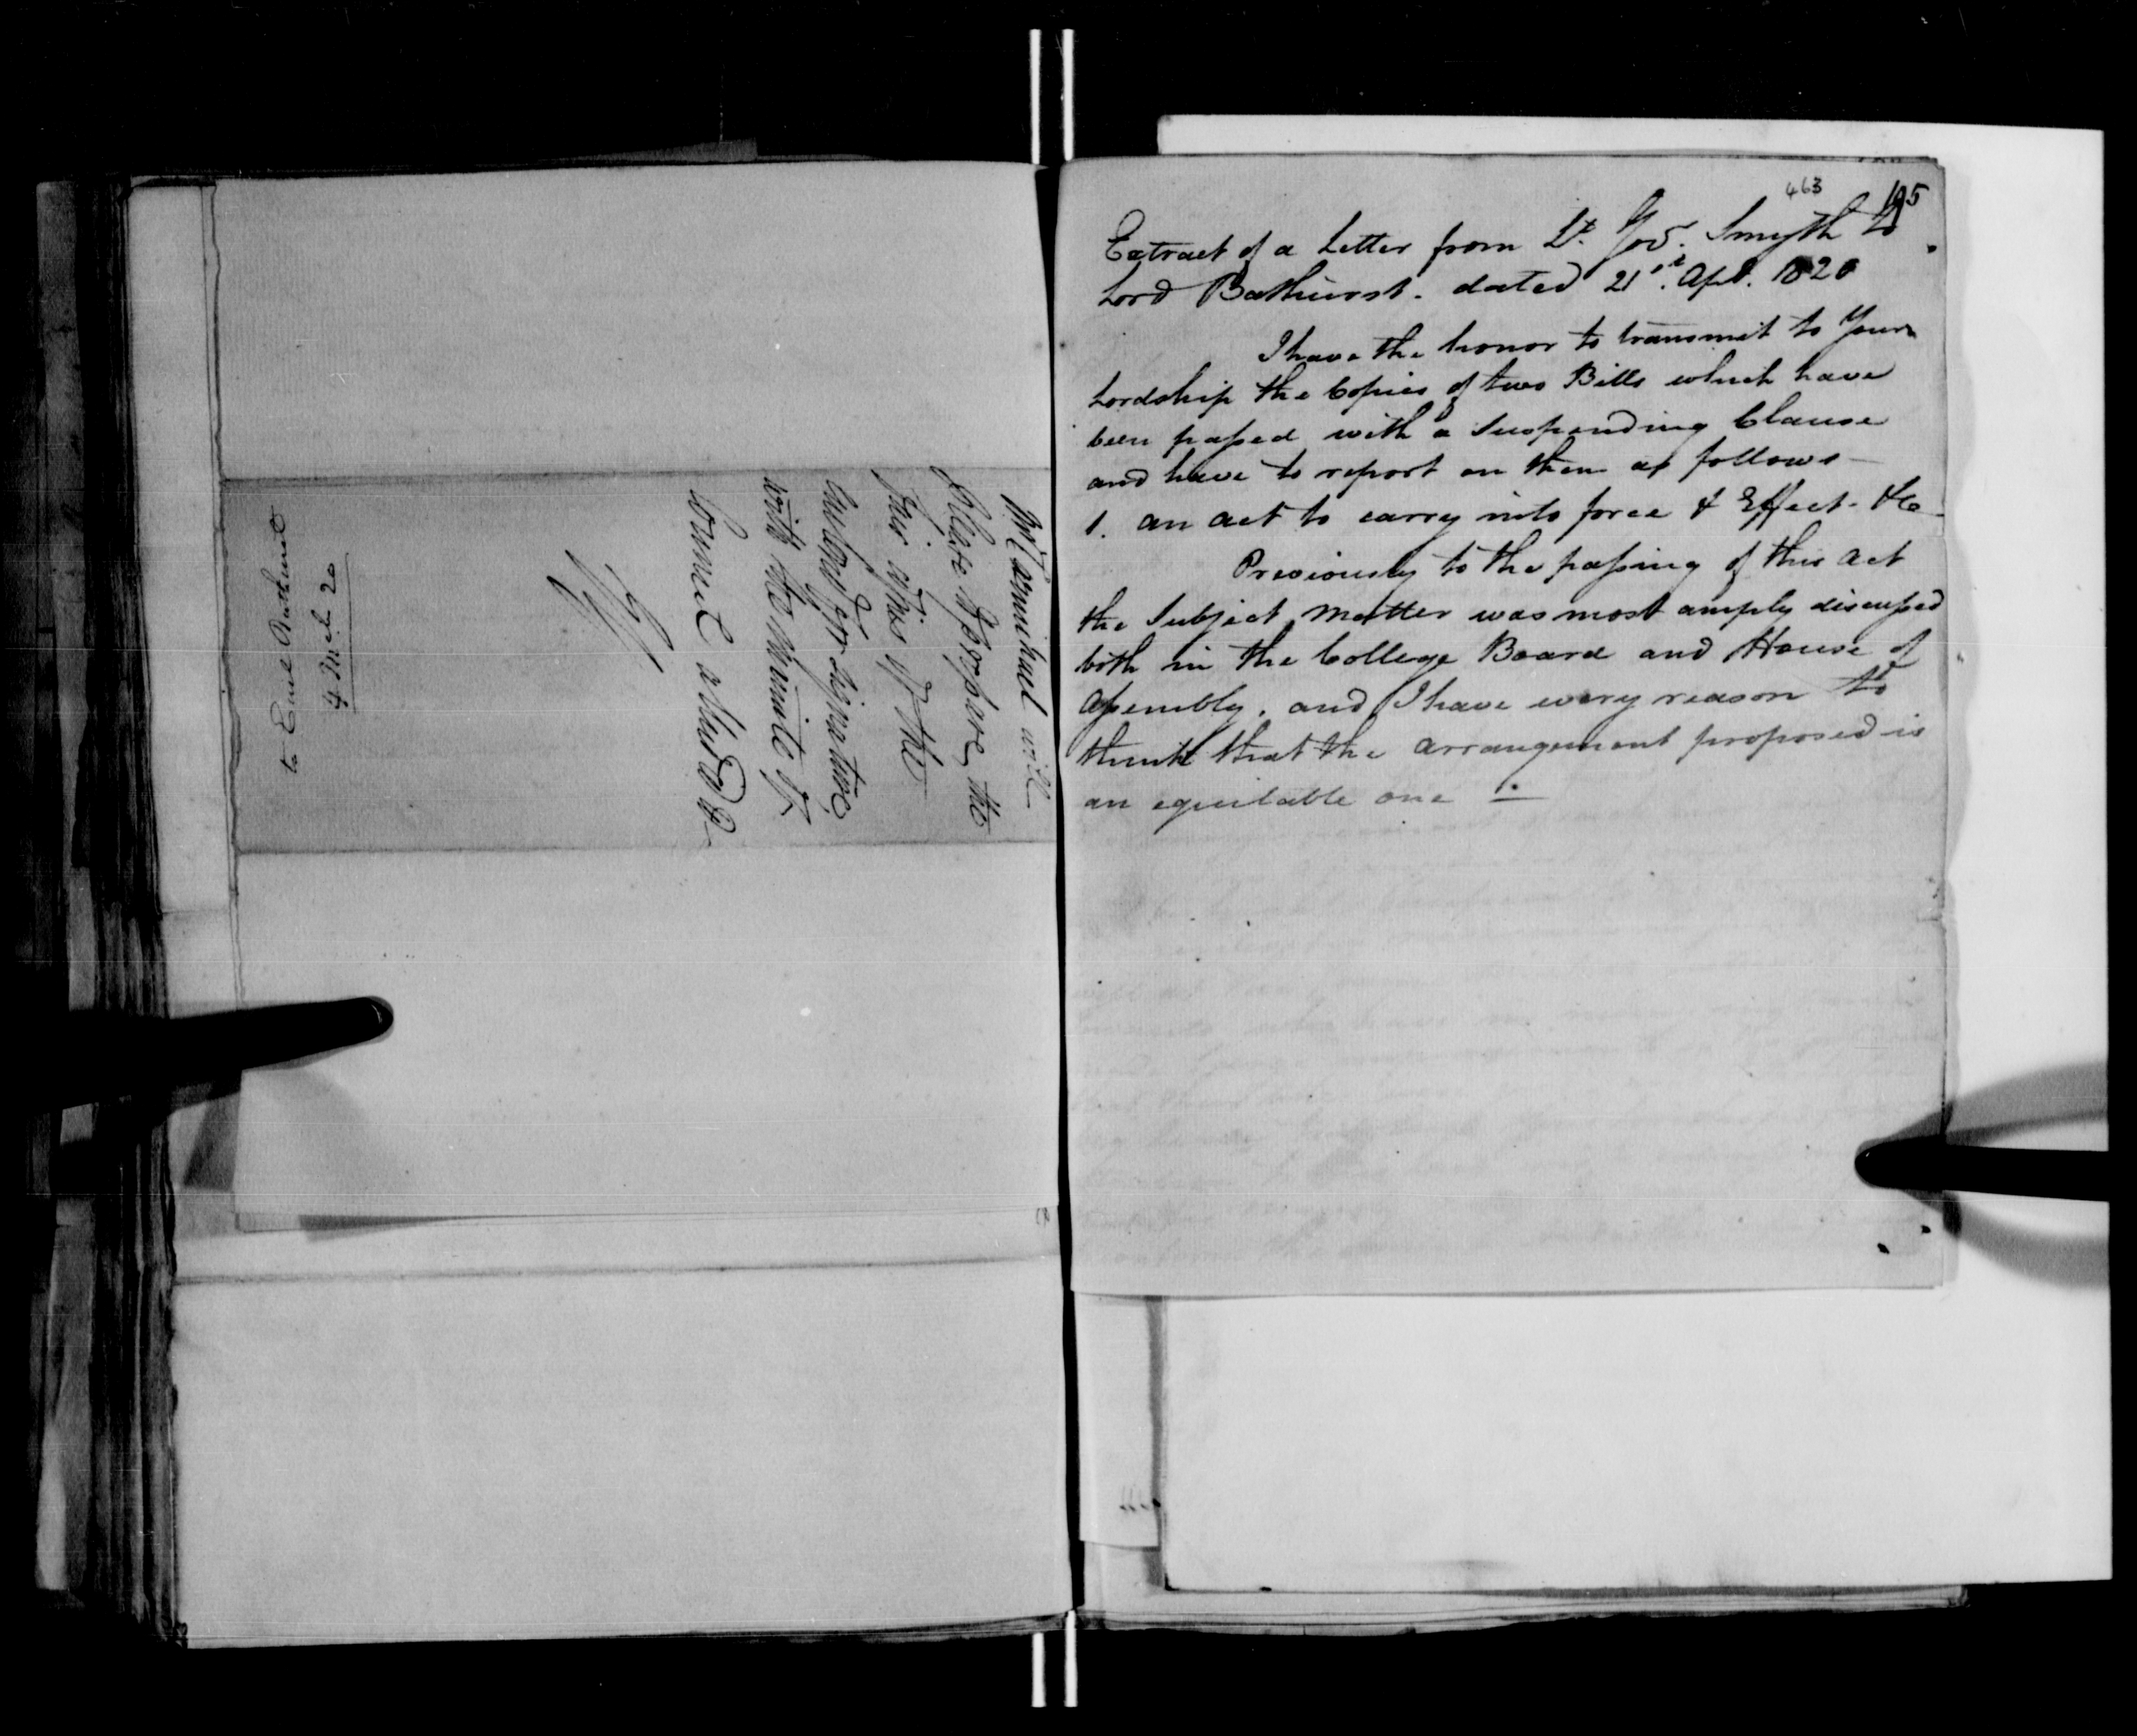 to Earl Bathurst
4 March 20
Mr Carmichael will
please to prepare the
fair copies of the
enclosed for signature
with the Minute of
Council alluded to
463
195
Extract of a Letter from Lt. Gov. Smyth to
Lord Bathurst. dated 21st. Apl. 1820
I have the honor to transmit to Your
Lordship the Copies of two Bills which have
been passed with a Suspending Clause
and have to report on them as follows—
1. an act to carry into force & Effect- &c
Previously to the passing of this act
the Subject Matter was most amply discussed
both in the College Board and House of
Assembly, and I have every reason to
think that the arrangement proposed is
an equitable one —